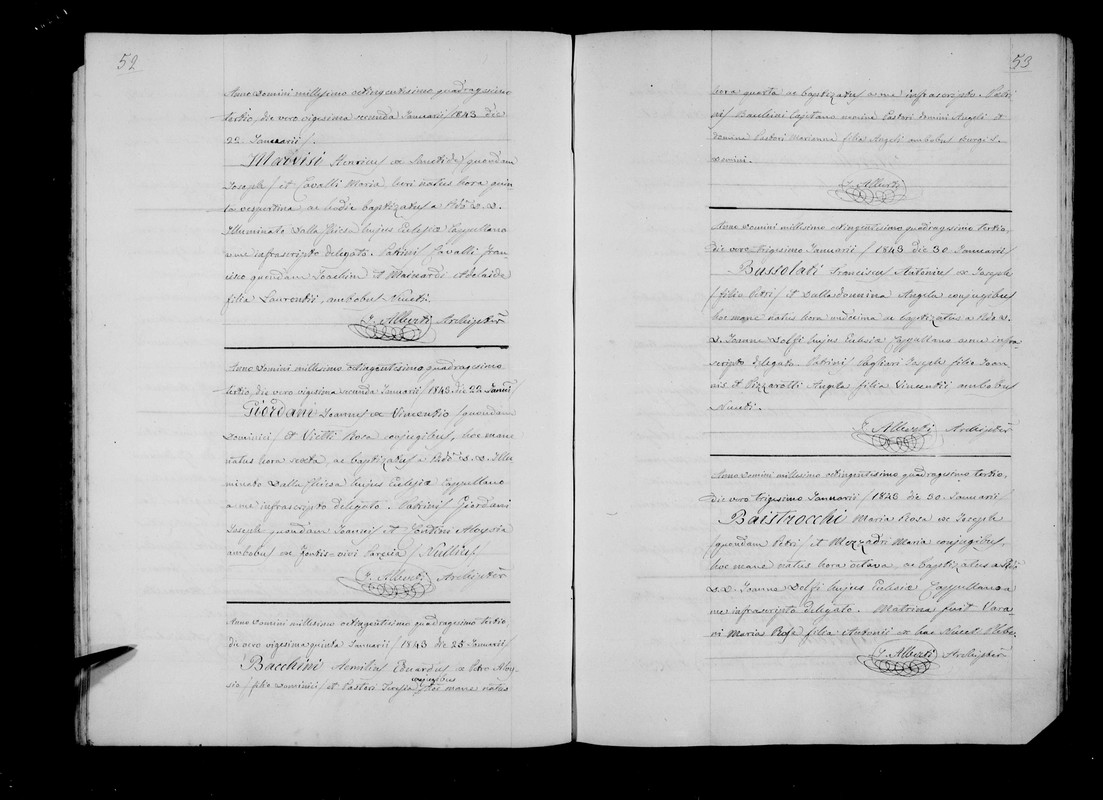 52
Anno Domini millesimo octingentesimo quadragesimo
tertio, die vero vigesima secunda Januarii / 1843 die
22 Januarii /.
Marvisi Henricus ex Benedicto quondam
Joseph / et Cavalli Maria, heri natus hora quin
ta vespertina, ac hodie baptizatus a Rdo D. D.
Illuminato Dalla Chiesa hujus Eclesiæ Cappellano
a me infrascripto delegato. Patrini Cavalli Fran
cisco quondam Joachim et Mainardi Adelaide
filia Laurentii, ambobus Nuceti.
J. Alberti Archipter
Anno Domini millesimo octingentesimo quadragesimo
tertio, die vero vigesima secunda Januarii / 1843 die 22 Januarii /
Giordani Joannes ex Vincentio / quondam
Dominici / et Vietti Rosa conjugibus, hoc mane
natus hora sexta, ac baptizatus a Rdo D. D. Illu
minato Dalla Chiesa hujus Eclesiæ Cappellano
a me infrascripto delegato. Patrini Giordani
Joseph quondam Joannis et Fontino Aloysia
ambobus ex Fontis=vivi Parœcia / Nullius /
J. Alberti Archipter
Anno Domini millesimo octingentesimo quadragesimo tertio,
die vero vigesima quinta Januarii / 1843 die 25 Januarii /
Bacchini Aemilius Eduardus ex Petro Aloy-
sio / filio Dominici / et Pastori Teressa conjugibus hoc mane natus
53
hora quarta ac baptizatus a me infrascripto. Patri
ni Bachini Cajetano nomine Pastori Domini Angeli et
Domina Pastori Marianna filia Angeli ambobus Burgi S.
Domini.
J. Alberti
Anno Domini millesimo octingentesimo quadragesimo tertio,
die vero trigesimo Januarii / 1843 die 30 Januarii /
Bussolati Franciscus Antonius ex Joseph
/ filio Petri / et Dalla donnina Angela conjugibus
hoc mane natus hora undecima ac baptizatus a Rdo D.
D. Joanne Dolfi hujus Eclesiæ Cappellano a me infra-
scripto delegato. Patrini Pagliari Joseph filio Joan
nis et Pizzarotti Angela filia Vincentii ambobus
Nuceti.
J. Alberti Archipter
Anno Domini millesimo octingentesimo quadragesimo tertio,
die vero trigesimo Januarii / 1843 die 30 Januarii /
Baistrocchi Maria Rosa ex Joseph
/ quondam Petri / et Mezzadri Maria conjugibus,
hoc mane natus hora octava, ac baptizatus a Rdo
D. D. Joanne Dolfi hujus Eclesiæ Cappellano a
me infrascripto delegato. Matrina fuit Vara-
ni Maria Rosa filia Antonii ex hac Nucet Plebe.
J. Alberti Archipter